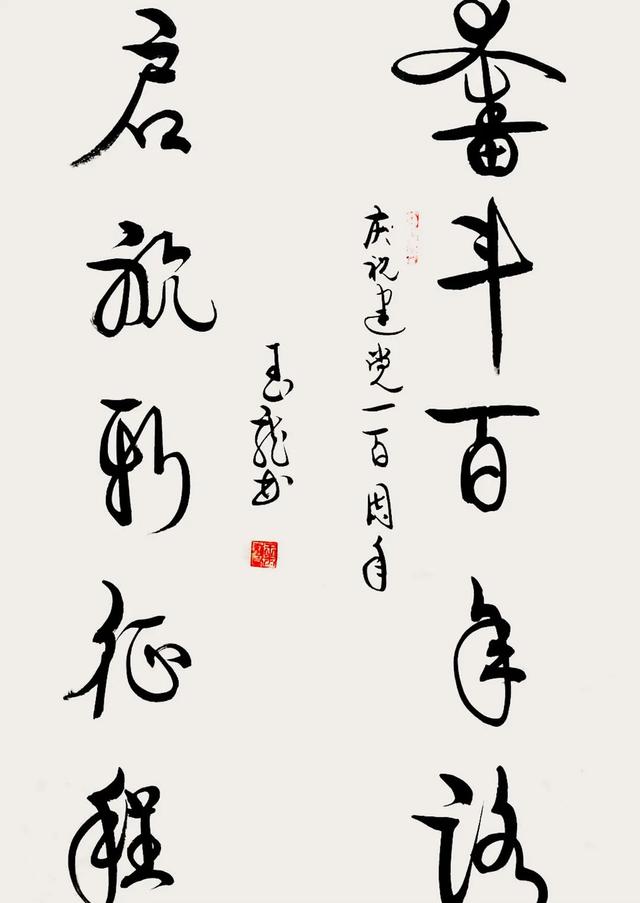 奋斗百年路
庆祝建党一百周年
玉龙书
启航新征程